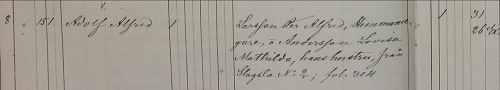 8 " 151 Adolf Alfred 1 Larsson Per Alfred, Hemmanä- 1 31
gare, o Andersson Lovisa 26
Mathilda, hans hustru, från
Slagsla No 2; fol. 304